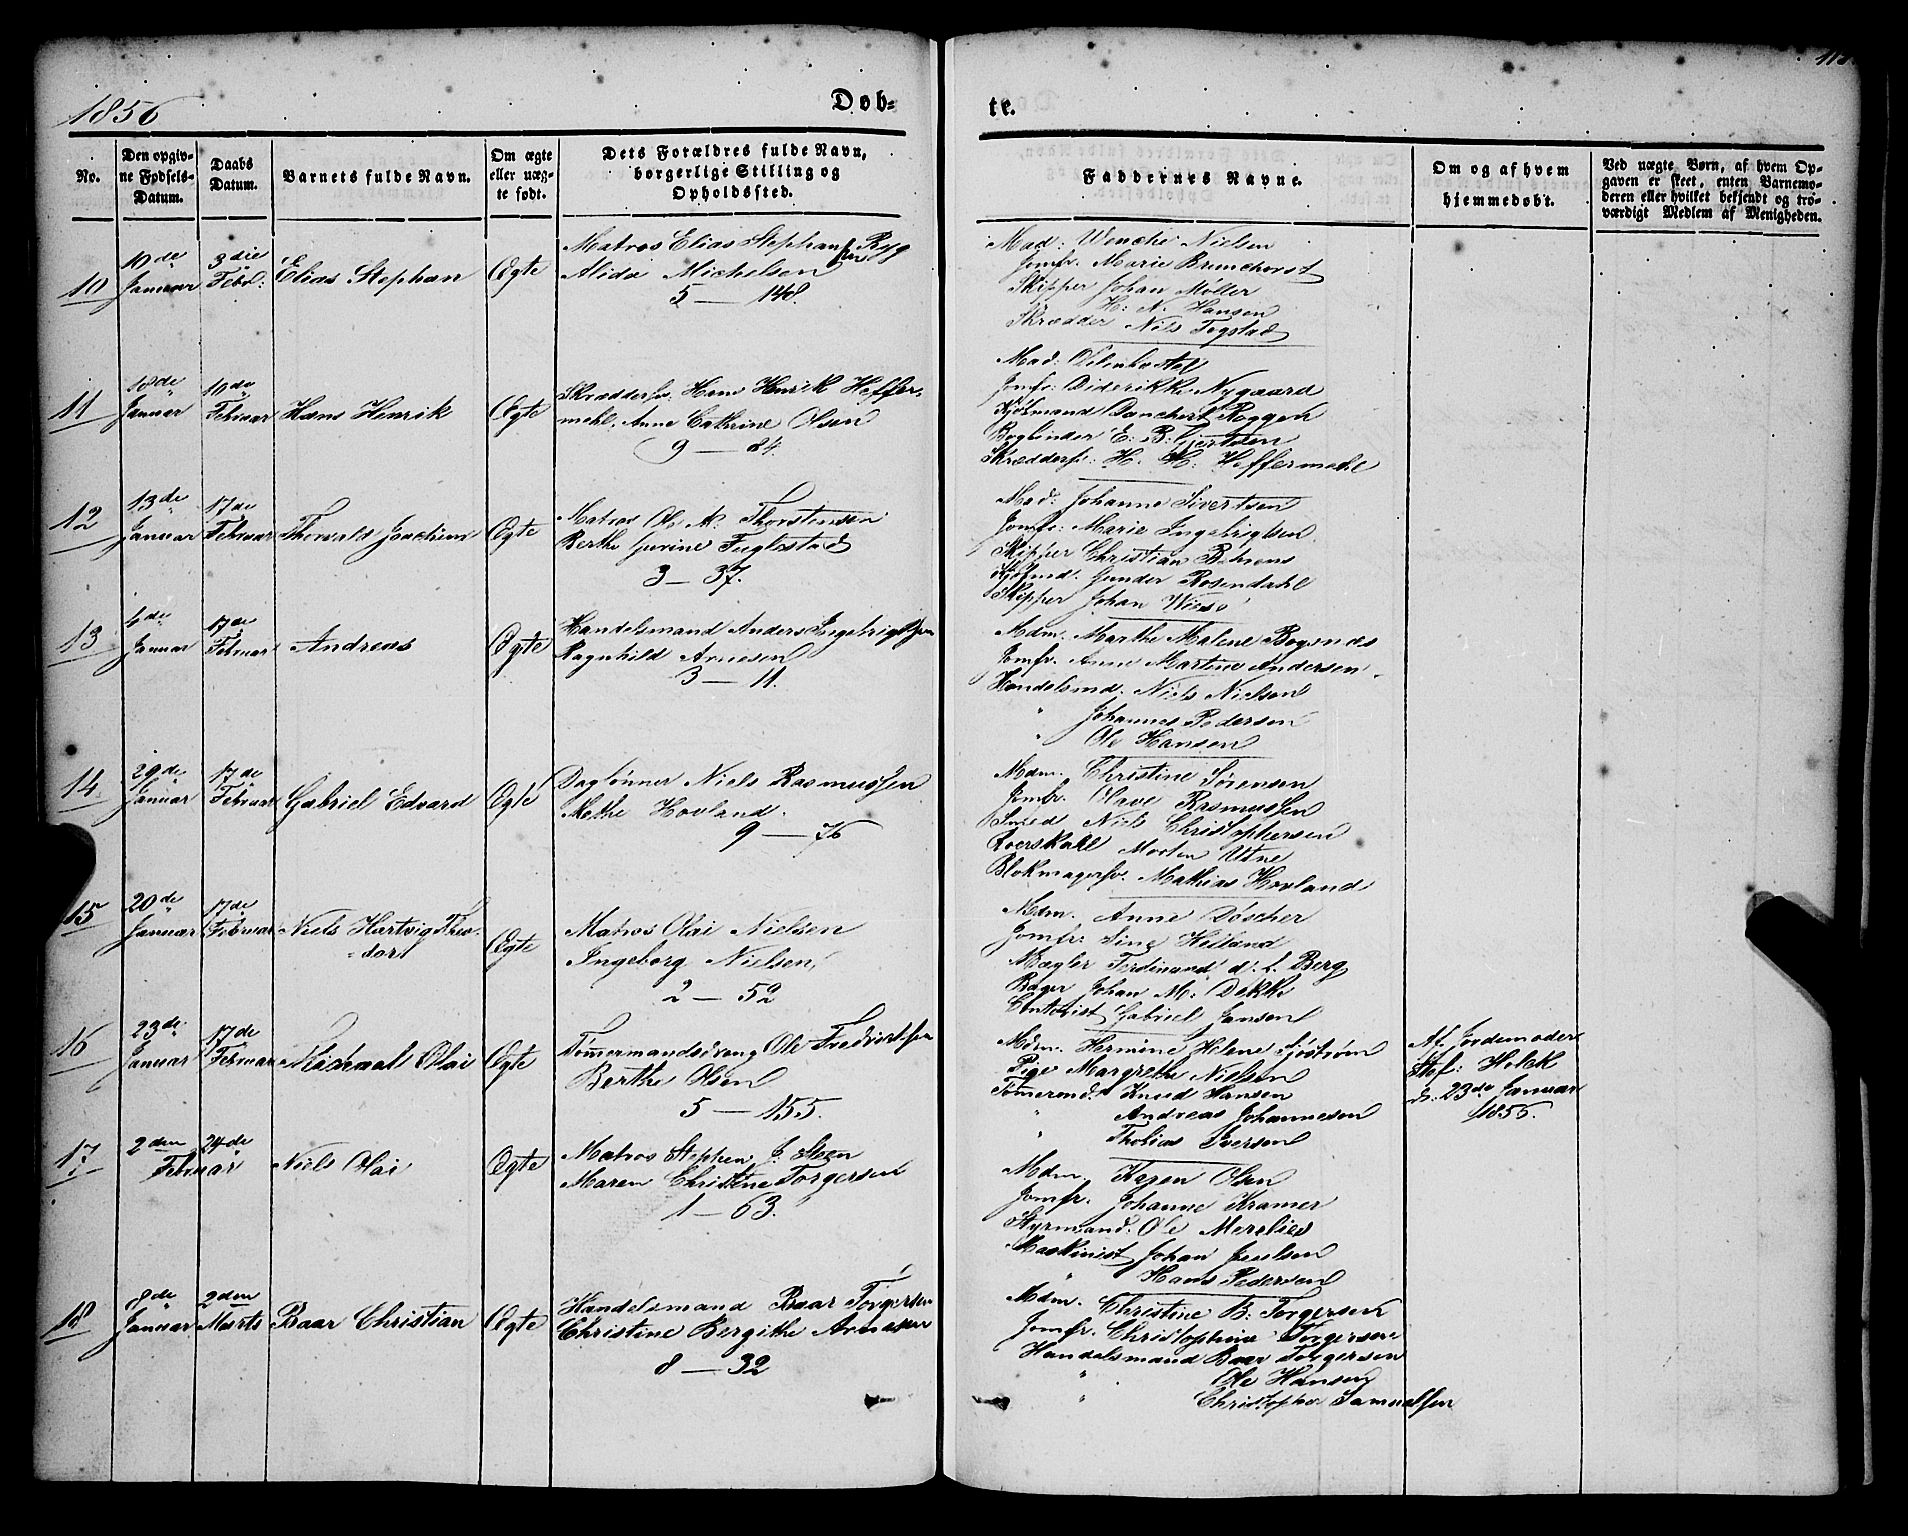 1856
Døb-
te.
No.
Den opgiv-
ne Fødsels-
Datum.
Daabs
Datum.
Barnets fulde Navn.
Om ægte
eller uæg-
te født.
Dets Forældres fulde Navn,
borgerlige Stilling og
Opholdssted.
Faddernes Navne.
Om og af hvem
hjemmedøbt.
Ved uægte Børn, af hvem Op-
gaven er skeet, enten Barnemo-
deren eller hvilket bekjendt og tro-
værdigt Medlem af Menigheden.
10
19de
Januar
3die
Febr.
Elias Stephan
Ægte
Matros Elias Stephansen Ryg
Alida Michelsen
5 — 148.
Mad: Wenche Nielsen
Jomfr. Marie Brunchorst
Skipper Johan Møller
H. N. Hansen
Skrædder Nils Tegstad
11
18de
Januar
10de
Februar
Hans Henrik
Ægte
Skræddersv. Hans Henrik Heffer-
mehl, Anne Cathrine Olsen
9 — 84.
Mad:
Jomfr: Diderikke Nygaard
Kjøbmand Danchert Roggen
Bogbinder E. B. Gjertsen
Skræddersv. H. H. Heffermehl
12
13de
Januar
17de
Februar
Thorvald Joachim
Ægte
Matros Ole M. Thorstensen
Berthe Gurine Fuglestad
3 — 37.
Mad: Johanne Sivertsen
Jomfr: Marie Ingebrigtsen
Skipper Christian Behrens
Kjøbmd. Gunder Rosendahl
Skipper Johan Wiese
13
4de
Januar
17de
Februar
Andreas
Ægte
Handelsmand Anders Ingebrigtsen
Ragnhild Arnesen
3 — 11.
Mdm. Marthe Malene Bognæs
Jomfr. Anne Martine Andersen
Handelsmd. Niels Nielsen
" Johannes Pedersen
" Ole Hansen
14
29de
Januar
17de
Februar
Gabriel Edvard
Ægte
Daglønner Niels Rasmussen
Methe Hovland
9 — 76
Mdm. Christine Sørensen
Jomfr. Olave Rasmussen
Smed Niels Christophersen
Roerskarl Morten Utne
Blokmagersv. Mathias Hovland
15
20de
Januar
17de
Februar
Niels Hartvig Theo-
dor
Ægte
Matros Olai Nielsen
Ingeborg Nielsen
2 — 52
Mdm. Anne Døscher
Jomfr: Sine Heiland
Mægler Ferdinand d. L. Berg
Bager Johan M. Dekke
Contorist Gabriel Jansen
16
23de
Januar
17de
Februar
Michael Olai
Ægte
Tømermandsdreng Ole Fredriksen
Berthe Olsen
5 — 155.
Mdm. Hermine Helene Sjøstrøm
Pige Margrethe Nielsen
Tømermd. Knud Hansen
" Andreas Johannesen
" Thobias Iversen
Af Jordemoder
Stef: Holck
d. 23de Januar
1856.
17
2den
24de
Februar
Niels Olai
Ægte
Matros Stephen J. Steen
Maren Christine Torgersen
1 — 63.
Mdm. Karen Olsen
Jomfr. Johanne Kramer
Styrmand. Ole Merslies
Maskinist Johan Juelsen
" Hans Pedersen
18
8de
Januar
2den
Marts
Baar Christian
Ægte
Handelsmand Baar Torgersen
Christine Bergithe Arnesen
8 — 32
Mdm. Christine B. Torgersen
Jomfr. Christophine Torgersen
Handelsmand Baar Torgersen
" Ole Hansen
" Christopher Samuelsen